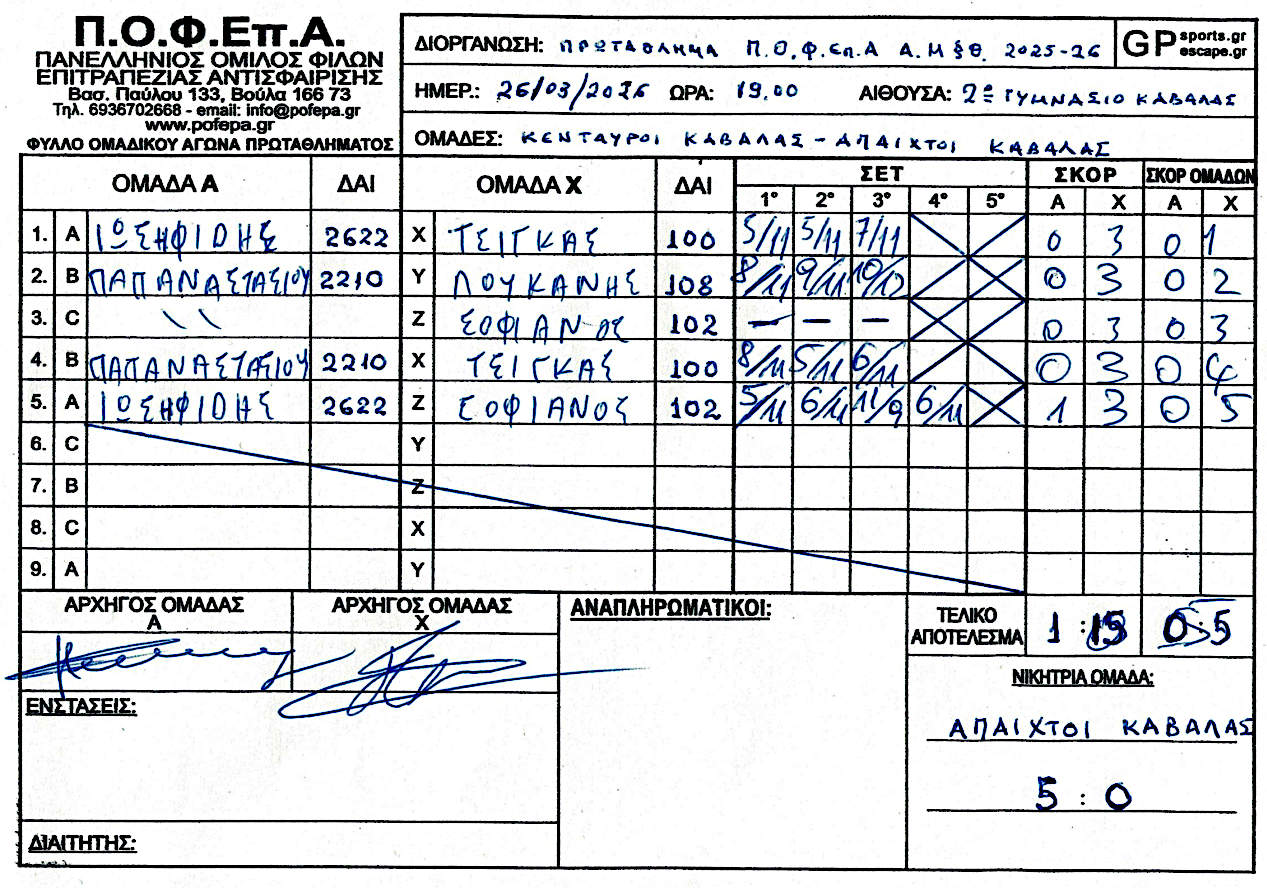 Π.Ο.Φ.Επ.Α.
ΠΑΝΕΛΛΗΝΙΟΣ ΟΜΙΛΟΣ ΦΙΛΩΝ
ΕΠΙΤΡΑΠΕΖΙΑΣ ΑΝΤΙΣΦΑΙΡΙΣΗΣ
Βασ. Παύλου 133, Βούλα 166 73
Τηλ. 6936702668 - email: info@pofepa.gr
www.pofepa.gr
ΦΥΛΛΟ ΟΜΑΔΙΚΟΥ ΑΓΩΝΑ ΠΡΩΤΑΘΛΗΜΑΤΟΣ
ΔΙΟΡΓΑΝΩΣΗ: ΠΡΩΤΑΘΛΗΜΑ Π.Ο.Φ.Επ.Α Α.Μ§Θ. 2025-26
GP sports.gr escape.gr
ΗΜΕΡ.: 26/03/2026 ΩΡΑ: 19.00 ΑΙΘΟΥΣΑ: 2ο ΓΥΜΝΑΣΙΟ ΚΑΒΑΛΑΣ
ΟΜΑΔΕΣ: ΚΕΝΤΑΥΡΟΙ ΚΑΒΑΛΑΣ - ΑΠΑΙΧΤΟΙ ΚΑΒΑΛΑΣ
ΟΜΑΔΑ Α ΔΑΙ ΟΜΑΔΑ Χ ΔΑΙ ΣΕΤ ΣΚΟΡ ΣΚΟΡ ΟΜΑΔΩΝ
1° 2° 3° 4° 5° Α Χ Α Χ
1. Α ΙΩΣΗΦΙΔΗΣ 2622 Χ ΤΣΙΓΚΑΣ 100 5/11 5/11 7/11 0 3 0 1
2. Β ΠΑΠΑΝΑΣΤΑΣΙΟΥ 2210 Υ ΛΟΥΚΑΝΗΣ 108 8/11 9/11 10/12 0 3 0 2
3. C \\ Ζ ΣΟΦΙΑΝΟΣ 102 — — — 0 3 0 3
4. Β ΠΑΠΑΝΑΣΤΑΣΙΟΥ 2210 Χ ΤΣΙΓΚΑΣ 100 8/11 5/11 6/11 0 3 0 4
5. Α ΙΩΣΗΦΙΔΗΣ 2622 Ζ ΣΟΦΙΑΝΟΣ 102 5/11 6/11 11/9 6/11 1 3 0 5
6. C Υ
7. Β Ζ
8. C Χ
9. Α Υ
ΑΡΧΗΓΟΣ ΟΜΑΔΑΣ Α
ΑΡΧΗΓΟΣ ΟΜΑΔΑΣ Χ
ΑΝΑΠΛΗΡΩΜΑΤΙΚΟΙ:
ΤΕΛΙΚΟ ΑΠΟΤΕΛΕΣΜΑ 1 : 15 0:5
ΝΙΚΗΤΡΙΑ ΟΜΑΔΑ:
ΑΠΑΙΧΤΟΙ ΚΑΒΑΛΑΣ
5 : 0
ΕΝΣΤΑΣΕΙΣ:
ΔΙΑΙΤΗΤΗΣ: